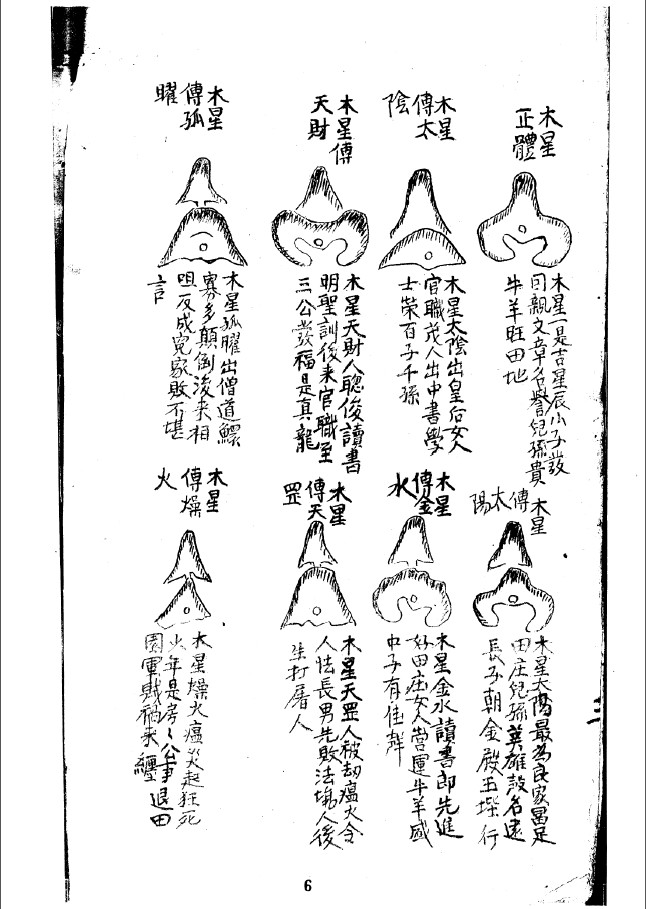 木星
正體
木星一是吉星辰小子發
司親文章名譽兒孫貴
牛羊旺田地
木星
傳太
陰
木星太陰出皇后女人
官職茂人出中書學
士榮百子千孫
木星傳
天財
木星天財人聰俊讀書
明聖訓後来官職至
三公發福是真龍
木星
傳孤
曜
木星孤曜出僧道鰥
寡多顛倒後来相
咀反成冤家敗不堪
言
木星
傳太
陽
木星太陽最為良家富足
田庄兒孫英雄設名達
長子朝金殿玉堦行
木星
傳金
水
木星金水讀書郎先進
好田庄女人當運牛羊盛
中子有佳群
木星
傳天
罡
木星天罡人被刼瘟火令
人怯長男先敗法場人後
生打屠人
木星
傳燥
火
木星燥火瘟災起狂死
少年是房〻公事退田
園軍賊禍来纏
三
6